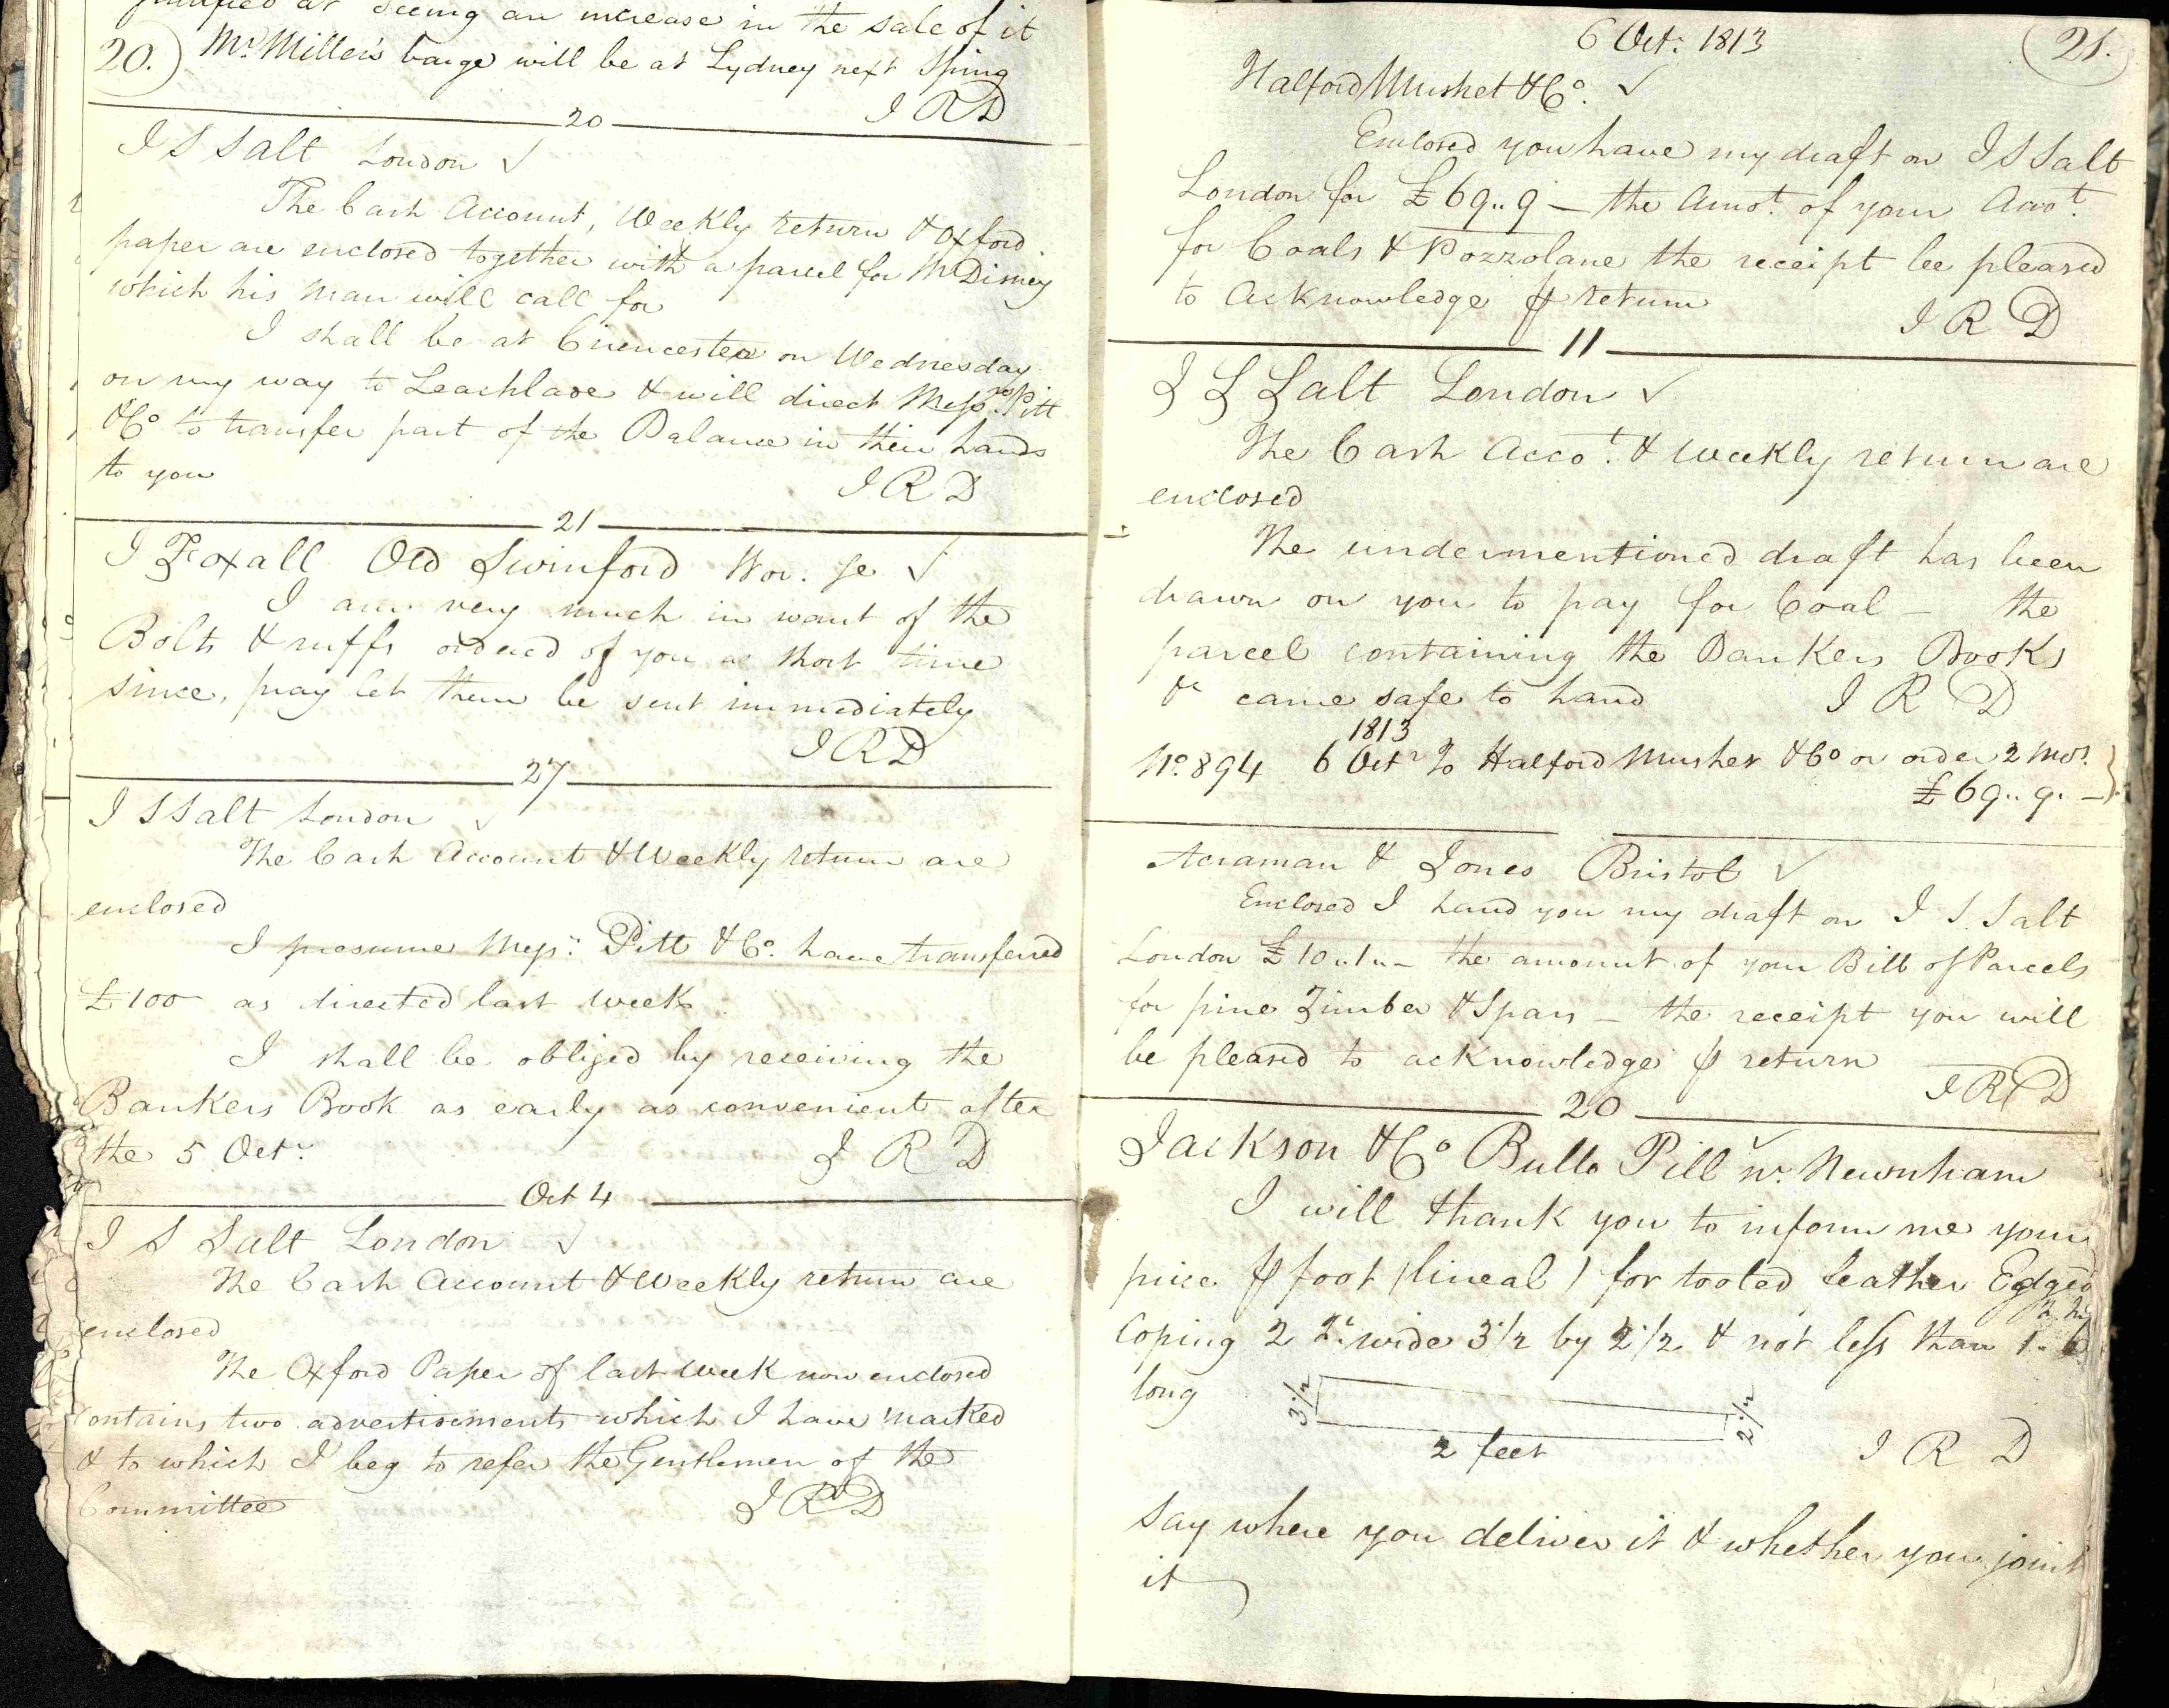 seeing an increase in the sale of it
20.) Mr. Millers barge will be at Lydney next Spring
I R D
20
I S Salt London ✓
The Cash Account, Weekly return & Oxford
paper are enclosed together with a parcel for Mr Disney
which his man will call for
I shall be at Cirencester on Wednesday
on my way to Leachlade & will direct Messrs. Pitt
& Co to transfer part of the Balance in their hands
to you
I R D
21
I Foxall Old Swinford Wor. Se ✓
I am very much in want of the
Bolts & ruffs ordered of you a short time
since, pray let them be sent immediately
I R D
27
I S Salt London ✓
The Cash Account & Weekly return are
enclosed
I presume Messrs. Pitt & Co. have transferred
£100 as directed last week
I shall be obliged by receiving the
Bankers Book as early as convenient after
the 5 Octr.
I R D
Oct 4
I S Salt London ✓
The Cash Account & Weekly return are
enclosed
The Oxford Paper of last week now enclosed
contains two advertisements which I have marked
& to which I beg to refer the Gentlemen of the
Committee
I R D
6 Octr. 1813
21.
Halford Mushet & Co. ✓
Enclosed you have my draft on I S Salt
London for £69..9 — the Amot. of your Accot.
for Coals & Pozzolane the receipt be pleased
to acknowledge ⅌ return
I R D
11
I S Salt London ✓
The Cash Accot. & Weekly return are
enclosed
The undermentioned draft has been
drawn on you to pay for Coal — the
parcel containing the Bankers Books
&c came safe to hand
I R D
1813
No. 894 6 Octr To Halford Mushet & Co or order 2 Mos.
£69..9. —
Acraman & Jones Bristol ✓
Enclosed I hand you my draft on I. S. Salt
London £10..1..- the amount of your Bill of Parcels
for pine Timber & Spars — the receipt you will
be pleased to acknowledge ⅌ return
I R D
20
Jackson & Co Bullo Pill ✓ nr. Newnham
I will thank you to inform me your
price ⅌ foot (lineal) for tooled feather Edged
Coping 2 ft wide 3 1/2 by 2 1/2 & not less than 1.. 6
long
3 1/2
2 feet
2 1/2
I R D
Say where you deliver it & whether you joint
it